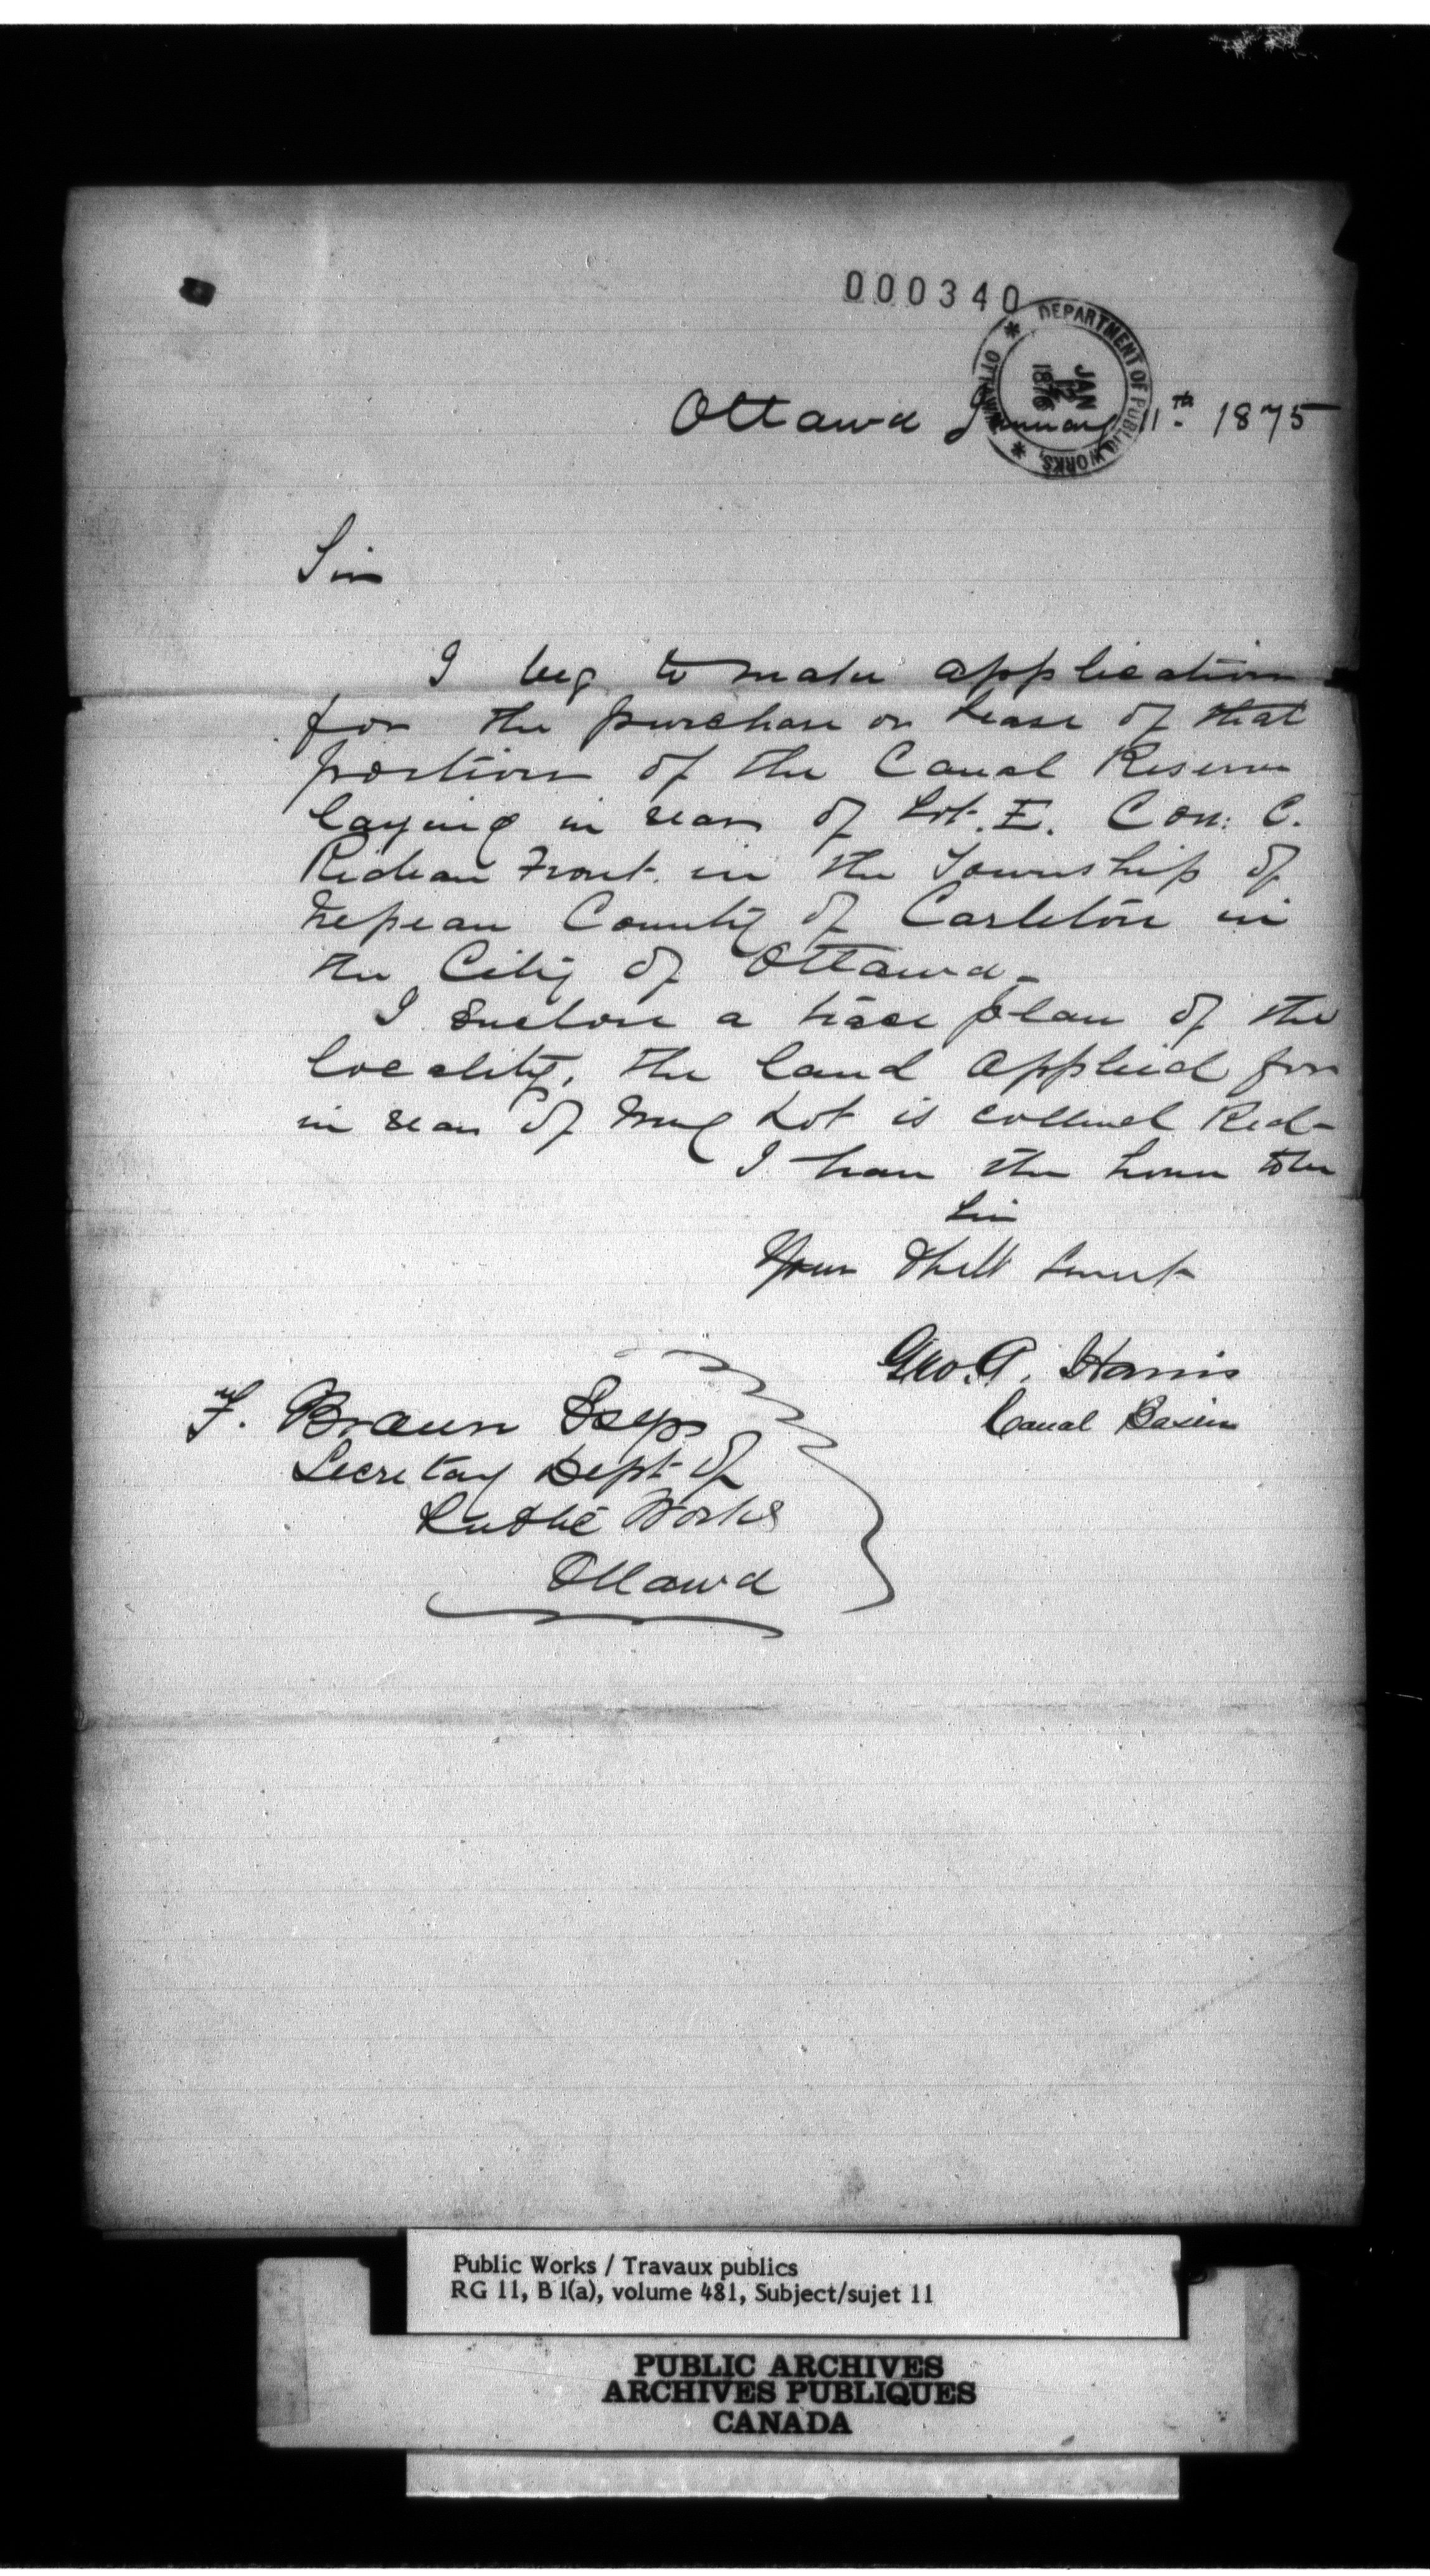 000340
DEPARTMENT OF PUBLIC WORKS, * OTTAWA *
JAN 12 1876
Ottawa January 11th 1875
Sir
I beg to make application
for the purchase or Lease of that
portion of the Canal Reserve
laying in rear of Lot. E. Con: C.
Rideau Front. in the Township of
Nepean County of Carleton in
the City of Ottawa_
I Enclose a trace plan of the
locality, the land applied for
in rear of my Lot is collered Red_
I have the honor to be
Sir
Your Obdt Servt
Geo. A. Harris
Canal Basin
F. Braun Esqr
Secretary Dept of
Public Works
Ottawa
Public Works / Travaux publics
RG 11, B 1(a), volume 481, Subject/sujet 11
PUBLIC ARCHIVES
ARCHIVES PUBLIQUES
CANADA